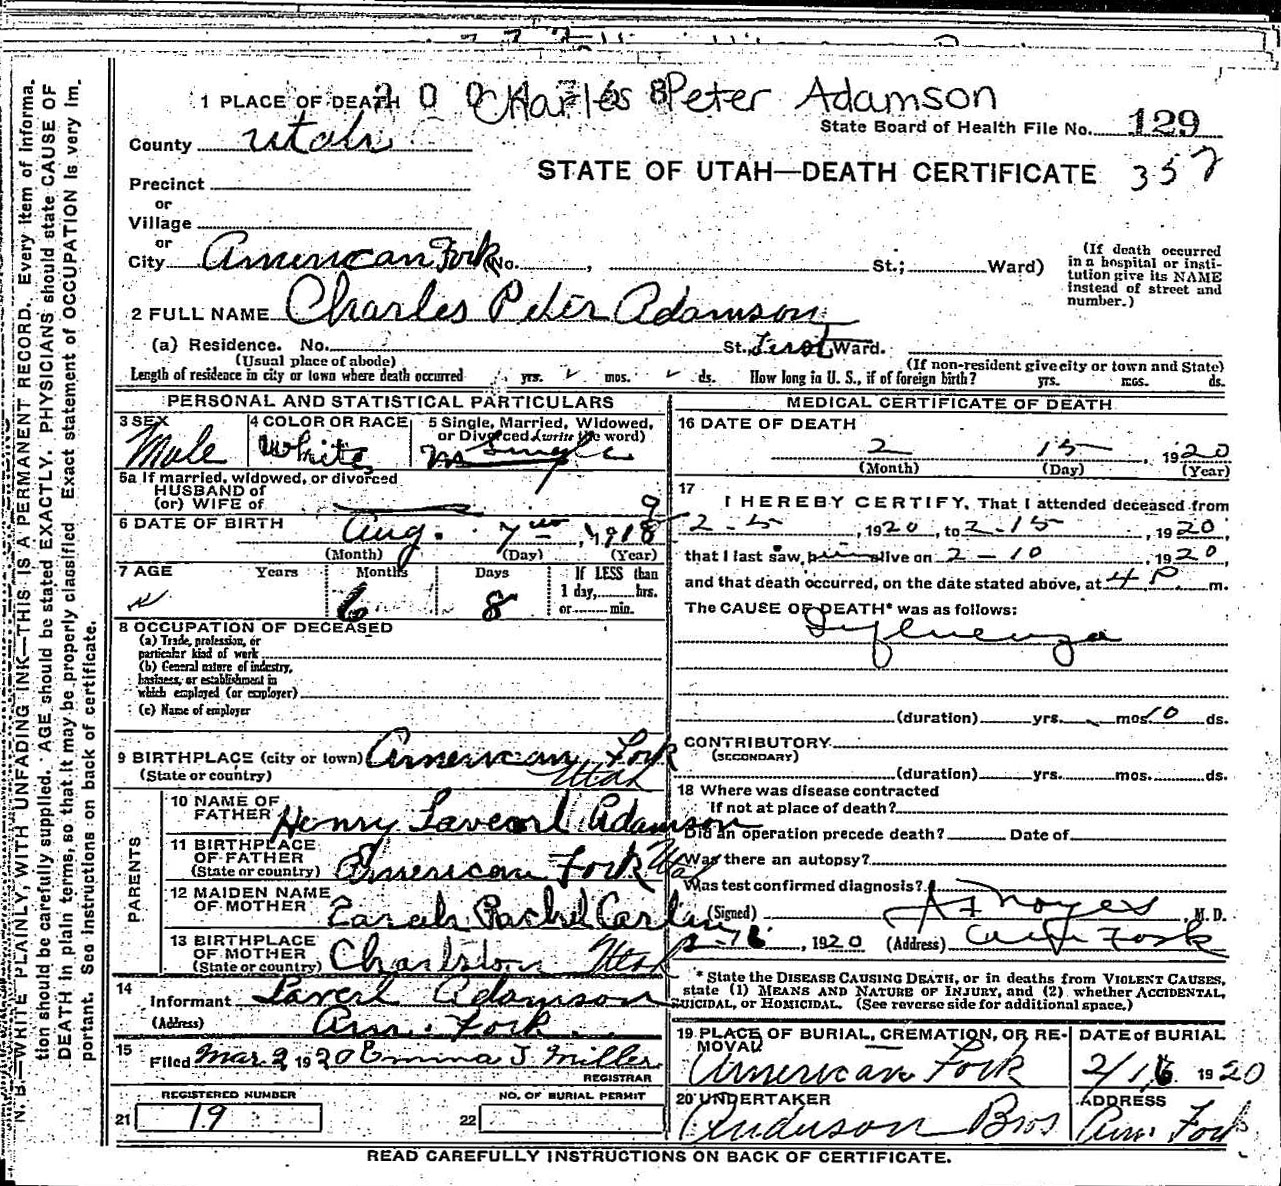 1 PLACE OF DEATH Charles Peter Adamson
State Board of Health File No. 129
County Utah
STATE OF UTAH—DEATH CERTIFICATE 357
Precinct
or
Village
or
City American Fork (No. , St.; Ward)
(If death occurred in a hospital or insti-
tution give its NAME instead of street and number.)
2 FULL NAME Charles Peter Adamson
(a) Residence. No. St. First Ward.
(Usual place of abode) (If non-resident give city or town and State)
Length of residence in city or town where death occurred yrs. mos. ds. How long in U. S., if of foreign birth? yrs. mos. ds.
PERSONAL AND STATISTICAL PARTICULARS
3 SEX Male
4 COLOR OR RACE White
5 Single, Married, Widowed, or Divorced (write the word) Single
5a If married, widowed, or divorced
HUSBAND of
(or) WIFE of
6 DATE OF BIRTH Aug. 7 1919
(Month) (Day) (Year)
7 AGE Years Months Days If LESS than
6 8 1 day, hrs.
or min.
8 OCCUPATION OF DECEASED
(a) Trade, profession, or
particular kind of work
(b) General nature of industry,
business, or establishment in
which employed (or employer)
(c) Name of employer
9 BIRTHPLACE (city or town) American Fork
(State or country) Utah
PARENTS
10 NAME OF FATHER Henry Adamson
11 BIRTHPLACE OF FATHER American Fork Utah
(State or country)
12 MAIDEN NAME OF MOTHER Sarah Rachel
13 BIRTHPLACE OF MOTHER Charlston Utah
(State or country)
14 Informant Laverl Adamson
(Address) Am. Fork
15 Filed Mar 2 1920 Emma J Miller
REGISTRAR
REGISTERED NUMBER NO. OF BURIAL PERMIT
21 19 22
MEDICAL CERTIFICATE OF DEATH
16 DATE OF DEATH
2 15, 1920
(Month) (Day) (Year)
17 I HEREBY CERTIFY, That I attended deceased from
2-5, 1920, to 2-15, 1920,
that I last saw him alive on 2-10 1920
and that death occurred, on the date stated above, at 4 P m.
The CAUSE OF DEATH* was as follows:
Influenza
(duration) yrs. mos. 10 ds.
CONTRIBUTORY
(SECONDARY)
(duration) yrs. mos. ds.
18 Where was disease contracted
if not at place of death?
Did an operation precede death? Date of
Was there an autopsy?
Was test confirmed diagnosis?
(Signed) Noyes, M. D.
2-16, 1920 (Address) Am Fork
* State the DISEASE CAUSING DEATH, or in deaths from VIOLENT CAUSES,
state (1) MEANS AND NATURE OF INJURY, and (2) whether ACCIDENTAL,
SUICIDAL, OR HOMICIDAL. (See reverse side for additional space.)
19 PLACE OF BURIAL, CREMATION, OR RE-
MOVAL American Fork
DATE of BURIAL
2/16 1920
20 UNDERTAKER Anderson Bros
ADDRESS Am. Fork
READ CAREFULLY INSTRUCTIONS ON BACK OF CERTIFICATE.
N. B.—WRITE PLAINLY, WITH UNFADING INK—THIS IS A PERMANENT RECORD. Every item of informa-
tion should be carefully supplied. AGE should be stated EXACTLY. PHYSICIANS should state CAUSE OF
DEATH in plain terms, so that it may be properly classified. Exact statement of OCCUPATION is very im-
portant. See instructions on back of certificate.